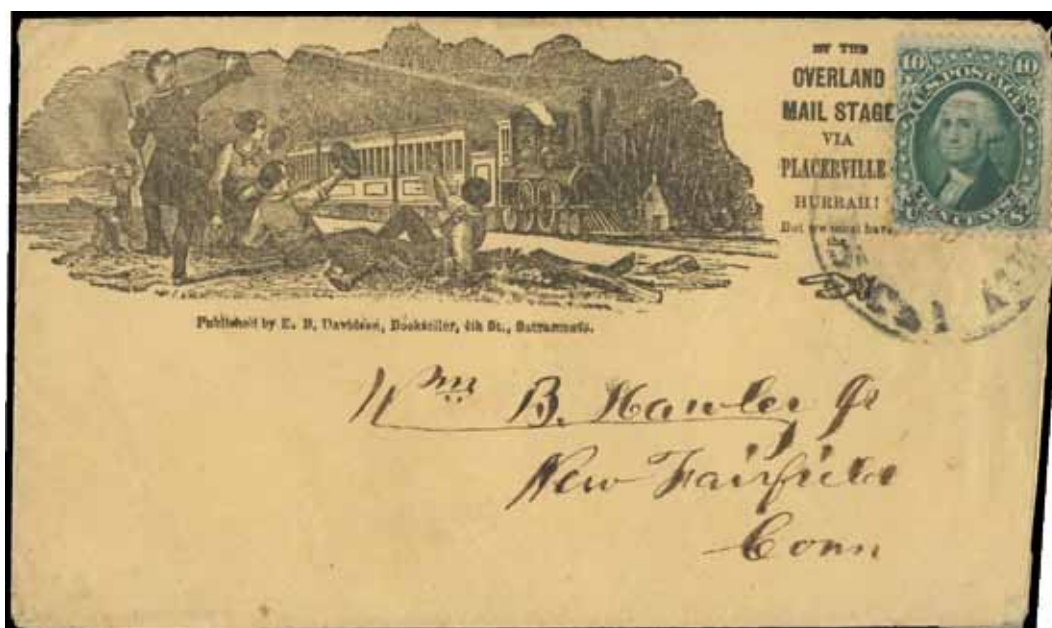 BY THE
OVERLAND
MAIL STAGE
VIA
PLACERVILLE
HURRAH!
But we must have
the
10 10
U.S. POSTAGE
TEN CENTS
U S
Published by E. B. Davidson, Bookseller, 4th St., Sacramento.
Wm B. Hawley Jr
New Fairfield
Conn